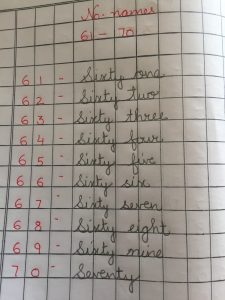 No. names
61 - 70
61 - Sixty one
62 - Sixty two
63 - Sixty three
64 - Sixty four
65 - Sixty five
66 - Sixty six
67 - Sixty seven
68 - Sixty eight
69 - Sixty nine
70 - Seventy